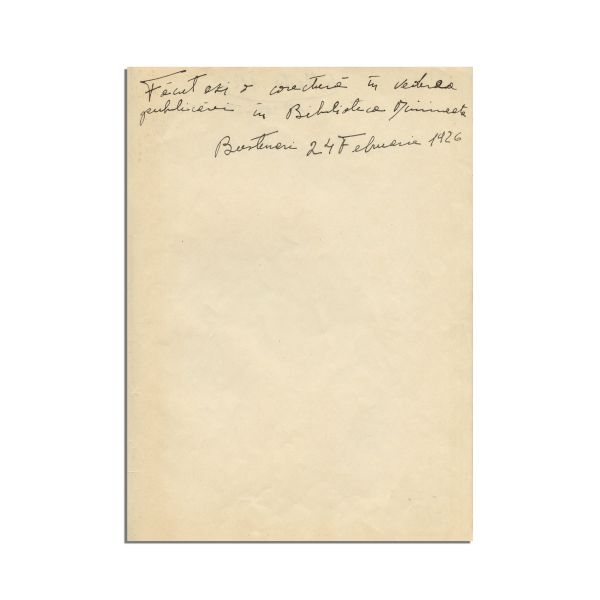 Făcut azi o corectură în vederea
publicării în Biblioteca Dimineața
Bustenari 24 Februarie 1926